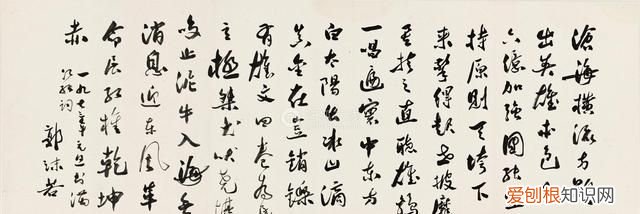 滄海横流方顯
出英雄本色
六億加強團結堅
持原則天垮下
来擎得起世披靡
矣扶之直聽雄鸡
一唱遍寰中东方
白太陽出冰山滴
真金在豈銷鑠
有雄文四卷為民
立極桀犬吠堯堪
笑止泥牛入海无
消息迎东風革
命展红旗乾坤
赤
一九七年元旦書滿
江红词
郭沫若
爱刨根知识网